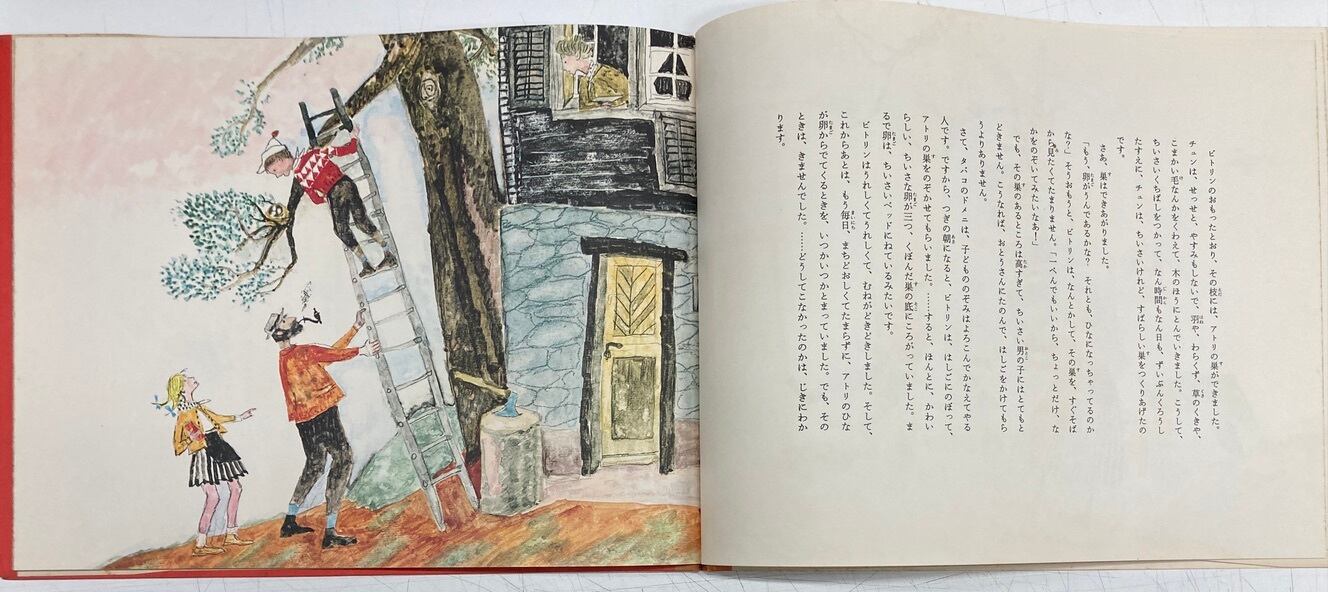 ビトリンのおもったとおり、その枝には、アトリの巣ができました。
チュンは、せっせと、やすみもしないで、羽や、わらくず、草のくきや、
こまかい毛なんかをくわえて、木のほうにとんでいきました。こうして、
ちいさくちばしをつかって、なん時間もなん日も、ずいぶんくろうし
たすえに、チュンは、ちいさいけれど、すばらしい巣をつくりあげたの
です。
さあ、巣はできあがりました。
「もう、卵がうんであるかな? それとも、ひなになっちゃってるのか
な?」そうおもうと、ビトリンは、なんとかして、その巣を、すぐそば
から見たくてたまりません。「一ぺんでもいいから、ちょっとだけ、な
かをのぞいてみたいなあ!」
でも、その巣のあるところは高すぎて、ちいさい男の子にはとてもと
どきません。こうなれば、おとうさんにたのんで、はしごをかけてもら
うよりありません。
さて、タバコのドメニは、子どもののぞみはよろこんでかなえてやる
人です。ですから、つぎの朝になると、ビトリンは、はしごにのぼって、
アトリの巣をのぞかせてもらいました。……すると、ほんとに、かわい
らしい、ちいさな卵が三つ、くぼんだ巣の底にころがっていました。ま
るで卵は、ちいさいベッドにねているみたいです。
ビトリンはうれしくてうれしくて、むねがどきどきしました。そして、
これからあとは、もう毎日、まちどおしくてたまらずに、アトリのひな
が卵からでてくるときを、いつかいつかとまっていました。でも、その
ときは、きませんでした。……どうしてこなかったのかは、じきにわか
ります。